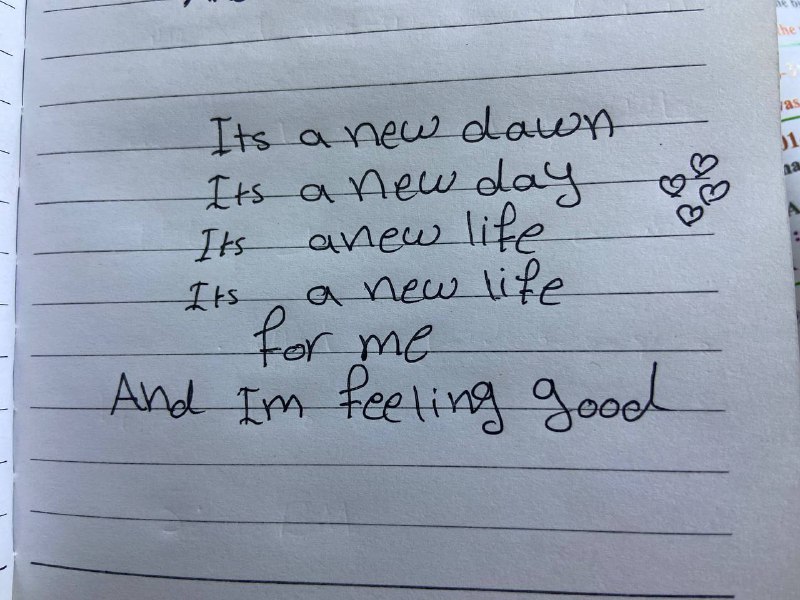 Its a new dawn
Its a new day
Its anew life
Its a new life
for me
And Im feeling good